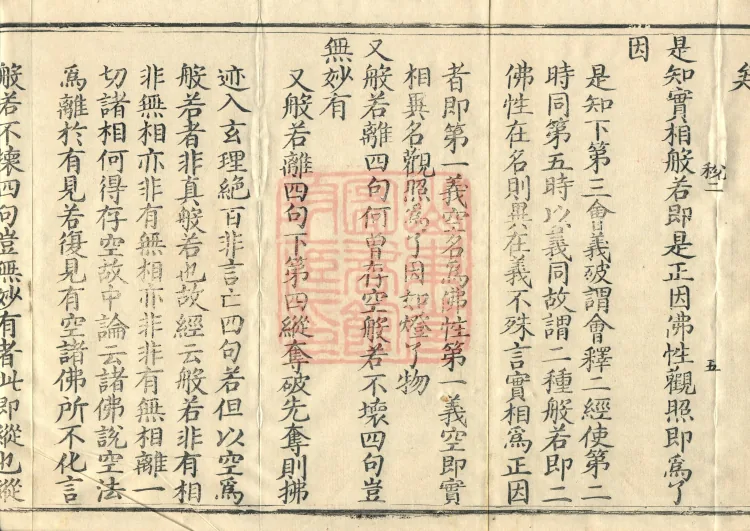 矣
是知實相般若即是正因佛性觀照即爲了
因
是知下第三會義破謂會釋二經使第二
時同第五時以義同故謂二種般若即二
佛性在名則異在義不殊言實相爲正因
者即第一義空名爲佛性第一義空即實
相異名觀照爲了因如燈了物
又般若離四句何曾存空般若不壞四句豈
無妙有
又般若離四句下第四縱奪破先奪則拂
迹入玄理絕百非言亡四句若但以空爲
般若者非真般若也故經云般若非有相
非無相亦非有無相亦非非有無相離一
切諸相何得存空故中論云諸佛說空法
爲離於有見若復見有空諸佛所不化言
般若不壞四句豈無妙有者此即縱也縱
五